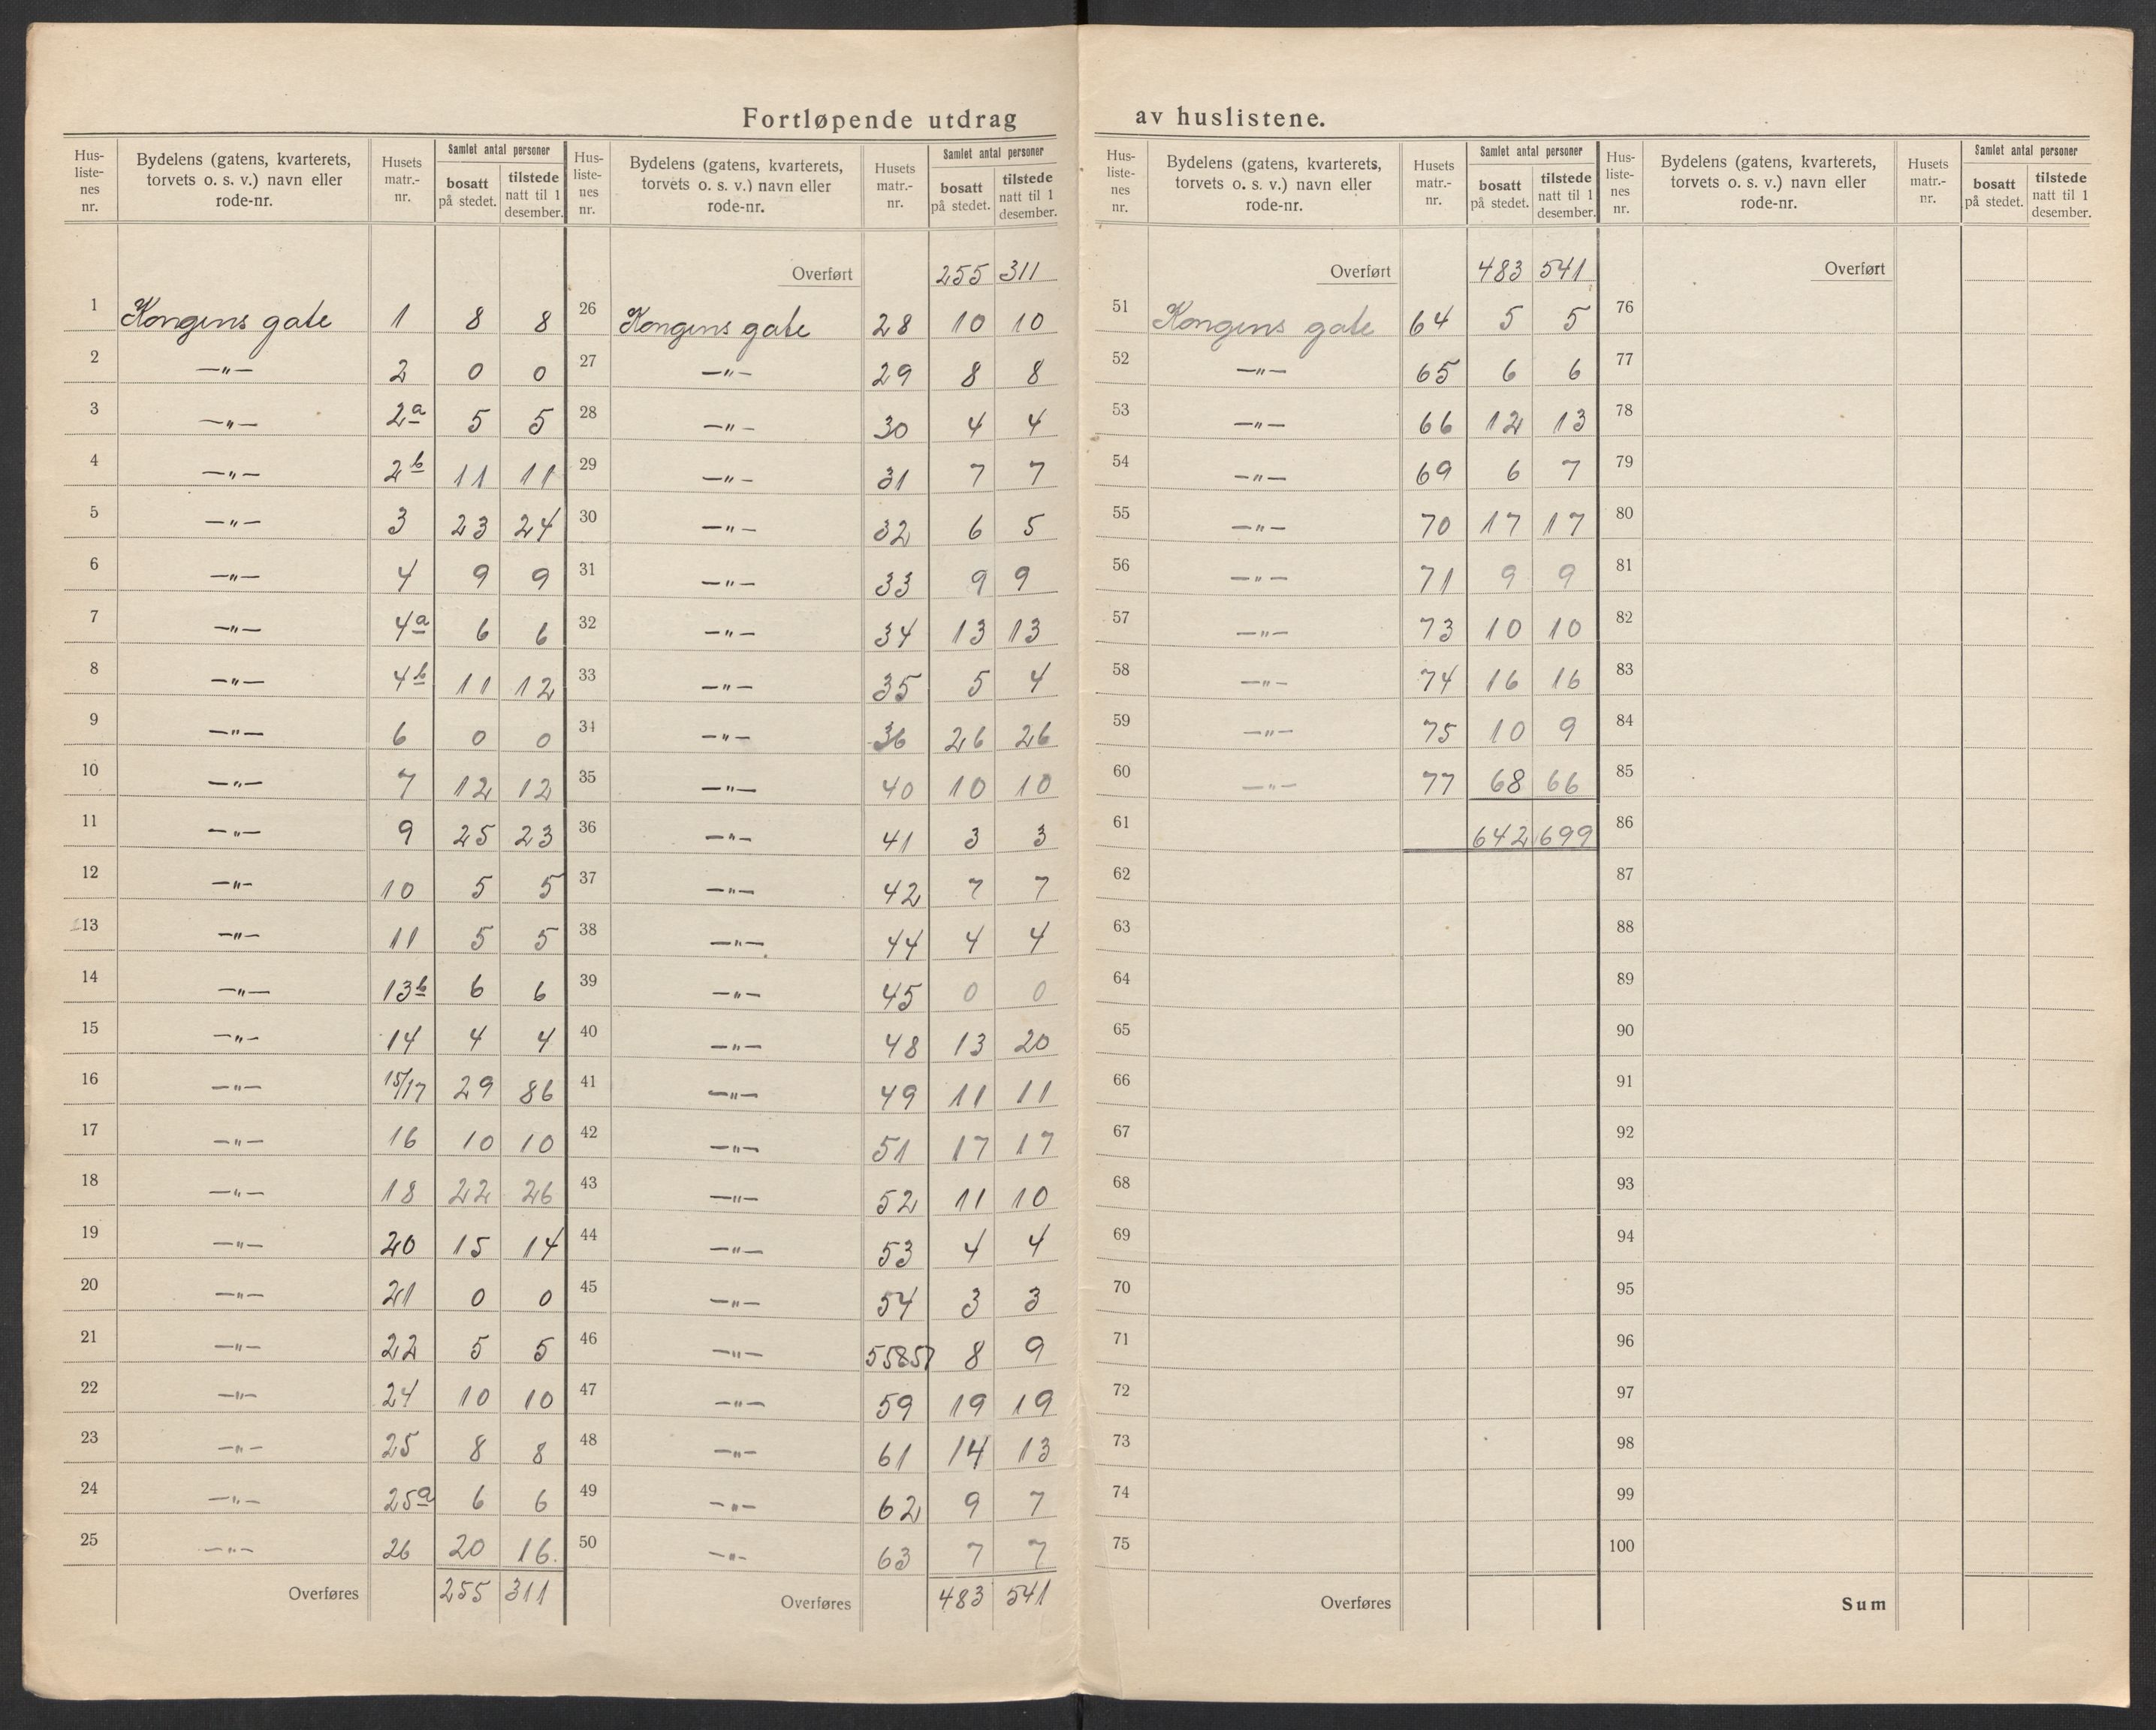 Fortløpende utdrag av huslistene.
Hus-liste-nes nr. | Bydelens (gatens, kvarterets, torvets o. s. v.) navn eller rode-nr. | Husets matr.-nr. | Samlet antal personer | bosatt på stedet. | tilstede natt til 1 desember.
1 Kongens gate 1 8 8
2 —"— 2 0 0
3 —"— 2a 5 5
4 —"— 2b 11 11
5 —"— 3 23 24
6 —"— 4 9 9
7 —"— 4a 6 6
8 —"— 4b 11 12
9 —"— 6 0 0
10 —"— 7 12 12
11 —"— 9 25 23
12 —"— 10 5 5
13 —"— 11 5 5
14 —"— 13b 6 6
15 —"— 14 4 4
16 —"— 15/17 29 86
17 —"— 16 10 10
18 —"— 18 22 26
19 —"— 20 15 14
20 —"— 21 0 0
21 —"— 22 5 5
22 —"— 24 10 10
23 —"— 25 8 8
24 —"— 25a 6 6
25 —"— 26 20 16.
Overføres 255 311
Hus-liste-nes nr. | Bydelens (gatens, kvarterets, torvets o. s. v.) navn eller rode-nr. | Husets matr.-nr. | Samlet antal personer | bosatt på stedet. | tilstede natt til 1 desember.
Overført 255 311
26 Kongens gate 28 10 10
27 —"— 29 8 8
28 —"— 30 4 4
29 —"— 31 7 7
30 —"— 32 6 5
31 —"— 33 9 9
32 —"— 34 13 13
33 —"— 35 5 4
34 —"— 36 26 26
35 —"— 40 10 10
36 —"— 41 3 3
37 —"— 42 7 7
38 —"— 44 4 4
39 —"— 45 0 0
40 —"— 48 13 20
41 —"— 49 11 11
42 —"— 51 17 17
43 —"— 52 11 10
44 —"— 53 4 4
45 —"— 54 3 3
46 —"— 55&57 8 9
47 —"— 59 19 19
48 —"— 61 14 13
49 —"— 62 9 7
50 —"— 63 7 7
Overføres 483 541
Hus-liste-nes nr. | Bydelens (gatens, kvarterets, torvets o. s. v.) navn eller rode-nr. | Husets matr.-nr. | Samlet antal personer | bosatt på stedet. | tilstede natt til 1 desember.
Overført 483 541
51 Kongens gate 64 5 5
52 —"— 65 6 6
53 —"— 66 12 13
54 —"— 69 6 7
55 —"— 70 17 17
56 —"— 71 9 9
57 —"— 73 10 10
58 —"— 74 16 16
59 —"— 75 10 9
60 —"— 77 68 66
61 642 699
62
63
64
65
66
67
68
69
70
71
72
73
74
75
Overføres
Hus-liste-nes nr. | Bydelens (gatens, kvarterets, torvets o. s. v.) navn eller rode-nr. | Husets matr.-nr. | Samlet antal personer | bosatt på stedet. | tilstede natt til 1 desember.
Overført
76
77
78
79
80
81
82
83
84
85
86
87
88
89
90
91
92
93
94
95
96
97
98
99
100
Sum